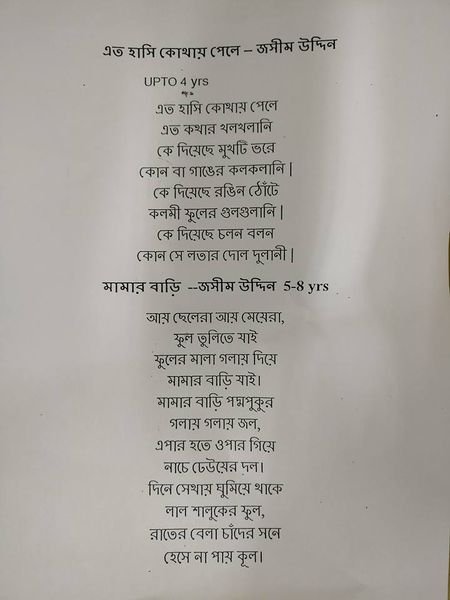 এত হাসি কোথায় পেলে – জসীম উদ্দিন
UPTO 4 yrs
এত হাসি কোথায় পেলে
এত কথার খলখলানি
কে দিয়েছে মুখটি ভরে
কোন বা গাঙের কলকলানি |
কে দিয়েছে রঙিন ঠোঁটে
কলমী ফুলের গুলগুলানি |
কে দিয়েছে চলন বলন
কোন সে লতার দোল দুলানী |
মামার বাড়ি --জসীম উদ্দিন 5-8 yrs
আয় ছেলেরা আয় মেয়েরা,
ফুল তুলিতে যাই
ফুলের মালা গলায় দিয়ে
মামার বাড়ি যাই।
মামার বাড়ি পদ্মপুকুর
গলায় গলায় জল,
এপার হতে ওপার গিয়ে
নাচে ঢেউয়ের দল।
দিনে সেথায় ঘুমিয়ে থাকে
লাল শালুকের ফুল,
রাতের বেলা চাঁদের সনে
হেসে না পায় কূল।